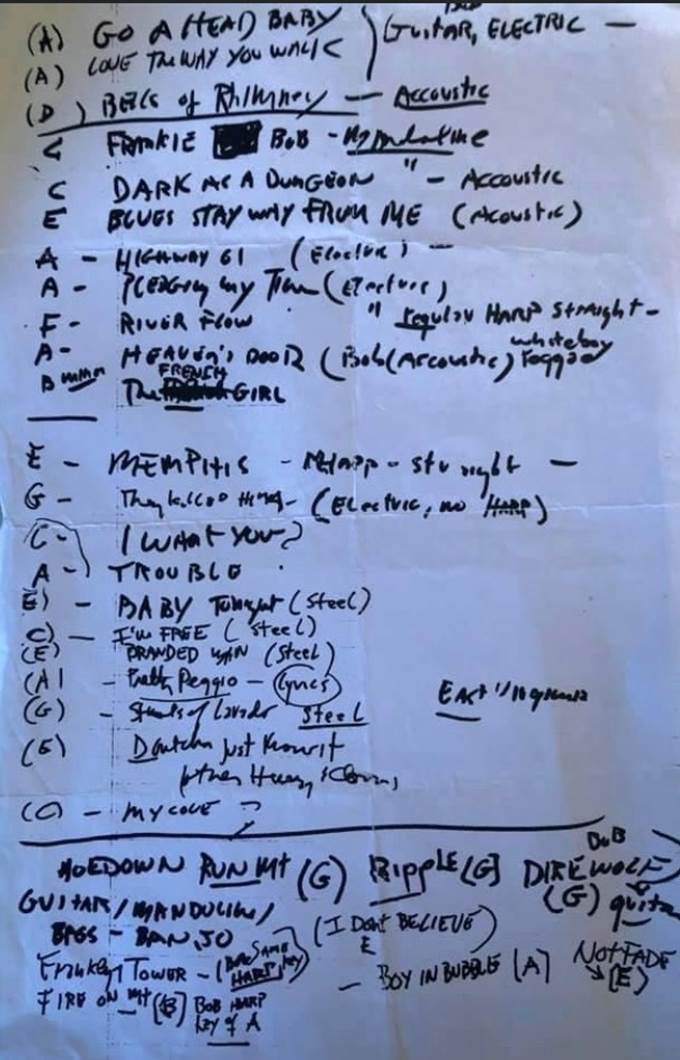 (A) GO A HEAD BABY
(A) LOVE The WAY YOU WALK
GUitAR, ELECTRIC —
(D) BELLS of Rhlmney — Accoustic
C FRANKIE BOB -
C DARK AS A DUNGEON " - Accoustic
E BLUES STAY WAY FROM ME (Acoustic)
A - HIGHWAY 61 (Electric) —
A - PLEDGing my Time (Electric)
F - RIVER FLOW " regular HARP Straight -
A - HEAVEN'S DOOR (Bob (Accoustic) whiteboy reggae
B The FRENCH GIRL
E - MEMPHIS - - straight —
G - They killed Him - (Electric, no HARP)
C - I WANT YOU?
A - TROUBLE
E) - BABY Tonight (Steel)
C) — I'm FREE (Steel)
(E) BRANDED MAN (Steel)
(A) - Pretty Peggio - (Lyrics)
(G) - Streets of Laredo Steel
(E) just Know it
other
- MY LOVE ?
HOEDOWN RUN MT (G) Ripple (G) DIRE WOLF BOB
GUITAR/MANDOLIN/ (G) guitar
BASS - BANJO (I DON'T BELIEVE)
E
Franklyn TOWER - SAME HARP key
- BOY IN BUBBLE (A) NOT FADE (E)
FIRE ON MT - (B) BOB HARP
key of A